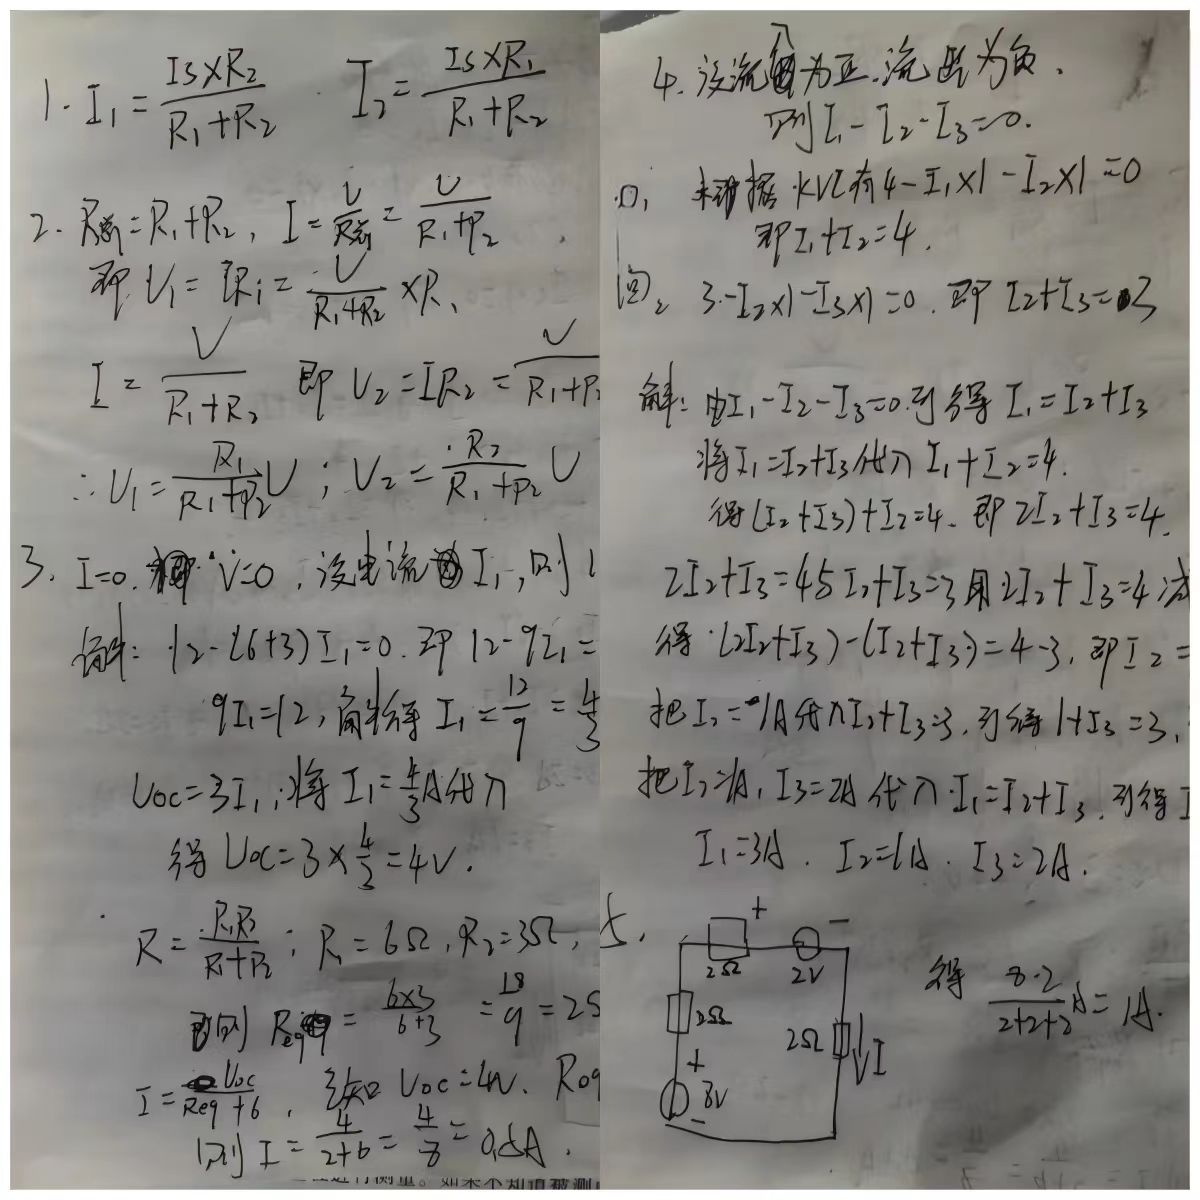 1. I₁ = (Is×R₂)/(R₁+R₂) I₂ = (Is×R₁)/(R₁+R₂)
2. R总=R₁+R₂, I=U/R总=U/(R₁+R₂)
即 U₁=IR₁=U/(R₁+R₂)×R₁
I=U/(R₁+R₂) 即 U₂=IR₂=U/(R₁+R₂
∴U₁=R₁/(R₁+R₂)U ; U₂=R₂/(R₁+R₂)U
3. I=0, V=0, 设电流 I₁, 则
解: 12-(6+3)I₁=0. 即 12-9I₁=
9I₁=12, 解得 I₁=12/9=4/3
Uoc=3I₁, 将 I₁=4/3A代入
得 Uoc=3×4/3=4V.
R=R₁R₂/(R₁+R₂); R₁=6Ω, R₂=3Ω,
则 Req=(6×3)/(6+3)=18/9=2
I=Uoc/(Req+6), 已知 Uoc=4V. Req
则 I=4/(2+6)=4/8=0.5A.
4. 设流入为正. 流出为负.
则I₁-I₂-I₃=0.
根据 KVL有4-I₁×1-I₂×1=0
即I₁+I₂=4.
回₂ 3-I₂×1-I₃×1=0. 即 I₂+I₃=3
解: 由I₁-I₂-I₃=0.可得 I₁=I₂+I₃
将I₁=I₂+I₃代入 I₁+I₂=4.
得(I₂+I₃)+I₂=4. 即 2I₂+I₃=4.
2I₂+I₃=4与I₂+I₃=3用2I₂+I₃=4减
得 (2I₂+I₃)-(I₂+I₃)=4-3, 即I₂=
把I₂=1A代入I₂+I₃=3, 可得1+I₃=3,
把I₂=1A, I₃=2A 代入 I₁=I₂+I₃, 可得I
I₁=3A. I₂=1A. I₃=2A.
5.
+ -
2Ω 2V
2Ω 2Ω I
+ 8V -
得 (8-2)/(2+2+2)A=1A.